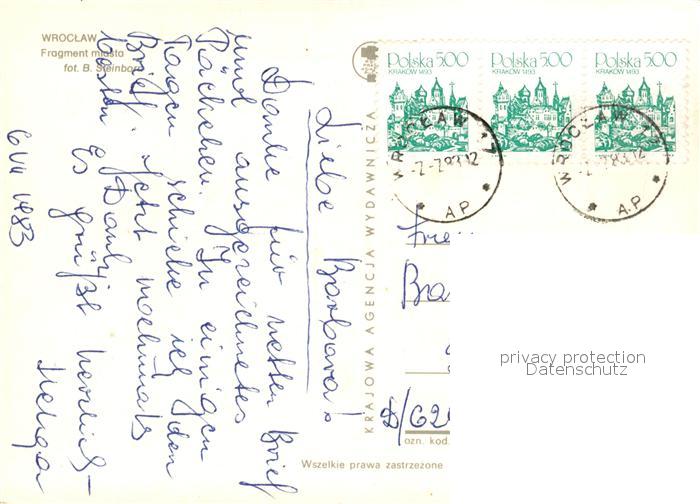 WROCŁAW
Fragment miasta
fot. B. Steinborn
Liebe Barbara!
Danke für netten Brief
und ausgezeichnetes
Päckchen. In einigen
Tagen schicke ich den
Brief. Jetzt nochmals
besten Dank
Es grüßt herzlich
Helga
6 VII 1983
KRAJOWA AGENCJA WYDAWNICZA
Polska 500
KRAKÓW 1493
Polska 500
KRAKÓW 1493
Polska 500
KRAKÓW 1493
WROCŁAW 17
-7.-7.83.12
A.P.
WROCŁAW 17
A.P.
Fre
Bra
D/62
ozn. kod.
Wszelkie prawa zastrzeżone
privacy protection
Datenschutz